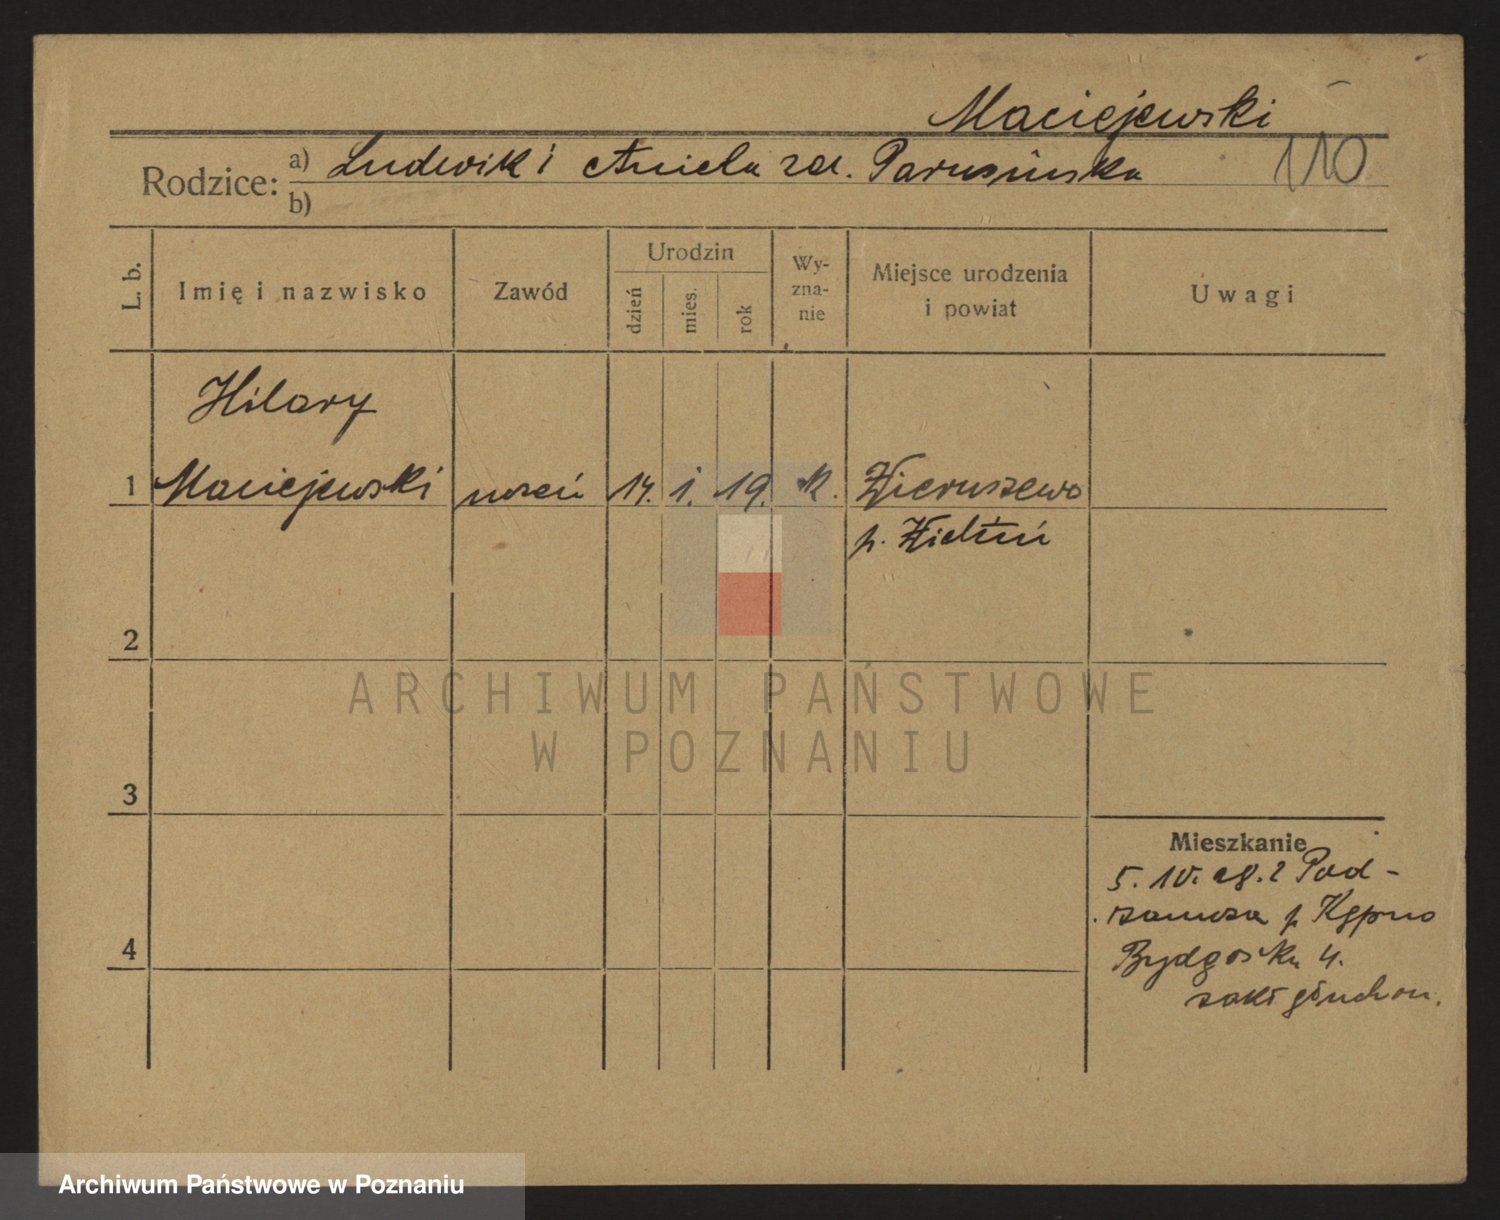 Maciejewski
Rodzice: a) Ludwik i Aniela zd. Parusińska 110
b)
L. b. Imię i nazwisko Zawód Urodzin dzień mies. rok Wy-zna-nie Miejsce urodzenia i powiat Uwagi
Hilary
1 Maciejewski uczeń 14. 1. 19. k. Wieruszewo
p. Wieluń
2
ARCHIWUM PAŃSTWOWE
W POZNANIU
3
Mieszkanie
5. 10. 28. z Pod-
zamcza p. Kępno
4 Bydgoska 4.
zakł głuchon.
Archiwum Państwowe w Poznaniu